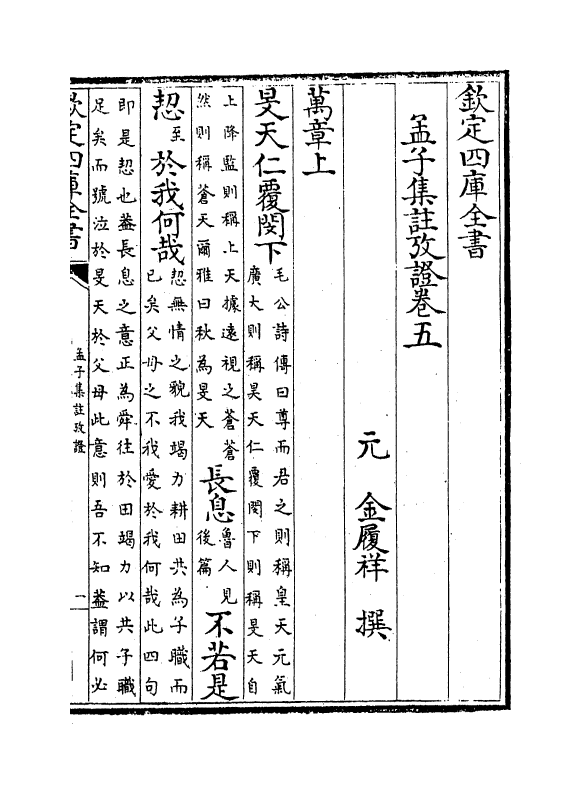 欽定四庫全書
孟子集註攷證卷五
元 金履祥 撰
萬章上
旻天仁覆閔下
毛公詩傳曰尊而君之則稱皇天元氣
廣大則稱昊天仁覆閔下則稱旻天自
上降監則稱上天據遠視之蒼蒼
然則稱蒼天爾雅曰秋為旻天
長息
魯人見
後篇
不若是
恝
至
於我何哉
恝無情之貌我竭力耕田共為子職而
已矣父母之不我愛於我何哉此四句
即是恝也葢長息之意正為舜往於田竭力以共子職
足矣而號泣於旻天於父母此意則吾不知葢謂何必
欽定四庫全書
孟子集註攷證
一